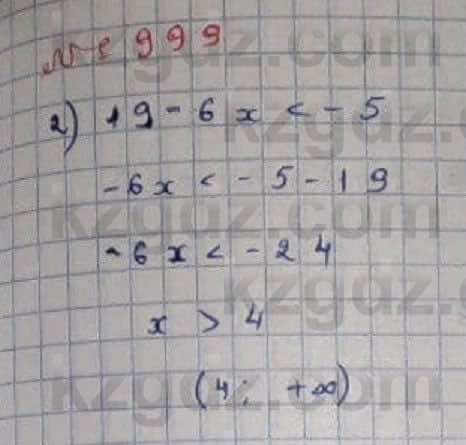 № 999
2) 19 - 6x < - 5
-6x < - 5 - 19
-6x < - 24
x > 4
(4; +∞)
kzgdz.com
kzgdz.com
kzgdz.com
kzgdz.com
kzgdz.com